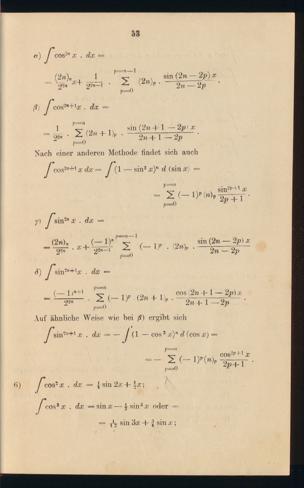 53
α) ∫ cos²ⁿ x . dx =
= (2n)ₙ/2²ⁿ x + 1/2²ⁿ⁻¹ . Σ_{p=0}^{p=n−1} (2n)ₚ . sin (2n − 2p) x / 2n − 2p .
β) ∫ cos²ⁿ⁺¹ x . dx =
= 1/2²ⁿ . Σ_{p=0}^{p=n} (2n + 1)ₚ . sin (2n + 1 − 2p) x / 2n + 1 − 2p .
Nach einer anderen Methode findet sich auch
∫ cos²ⁿ⁺¹ x dx = ∫ (1 − sin² x)ⁿ d (sin x) =
= Σ_{p=0}^{p=n} (− 1)ᵖ (n)ₚ sin²ᵖ⁺¹ x / 2p + 1 .
γ) ∫ sin²ⁿ x . dx =
= (2n)ₙ/2²ⁿ . x + (− 1)ⁿ/2²ⁿ⁻¹ Σ_{p=0}^{p=n−1} (− 1)ᵖ . (2n)ₚ . sin (2n − 2p) x / 2n − 2p .
δ) ∫ sin²ⁿ⁺¹ x . dx =
= (− 1)ⁿ⁺¹/2²ⁿ . Σ_{p=0}^{p=n} (− 1)ᵖ (2n + 1)ₚ . cos (2n + 1 − 2p) x / 2n + 1 − 2p .
Auf ähnliche Weise wie bei β) ergibt sich
∫ sin²ⁿ⁺¹ x . dx = − ∫ (1 − cos² x)ⁿ d (cos x) =
= − Σ_{p=0}^{p=n} (− 1)ᵖ (n)ₚ cos²ᵖ⁺¹ x / 2p+1 .
6) ∫ cos² x . dx = ¼ sin 2x + ½ x;
∫ cos³ x . dx = sin x − ⅓ sin³ x oder =
= 1/12 sin 3x + ¾ sin x;